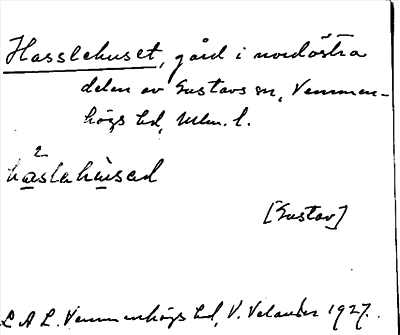 Hasslehuset, gård i nordöstra
delen av Gustavs sn, Vemmen-
högs hd, Mlm. l.
2
håslahùsəd
[Gustav]
L A L. Vemmenhögs hd, V. Velander 1927.